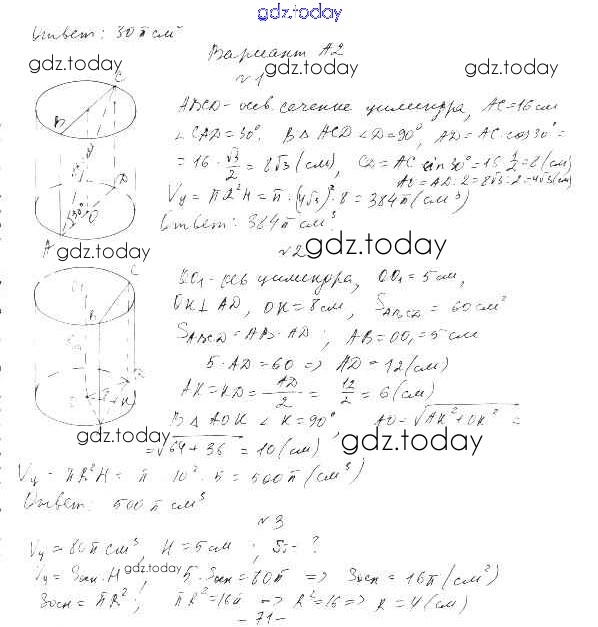 gdz.today
Ответ: 30π см³
Вариант А2
gdz.today gdz.today gdz.today
№1
ABCD - осев. сечение цилиндра, AC=16 см
∠CAD=30°. В △ACD ∠D=90°, AD=AC cos30°=
=16·√3/2=8√3(см), CD=AC sin30°=16·1/2=8(см)
AO=AD:2=8√3:2=4√3(см)
Vц=πR²H=π·(4√3)²·8=384π(см³)
Ответ: 384π см³.
№2
gdz.today gdz.today
OO₁-ось цилиндра, OO₁=5см,
OK⊥AD, OK=8см, S_ABCD=60см²
S_ABCD=AB·AD; AB=OO₁=5см
5·AD=60=>AD=12(см)
AK=KD=AD/2=12/2=6(см)
В △AOK ∠K=90°, AO=√AK²+OK²=
=√64+36=10(см)
gdz.today gdz.today
Vц=πR²H=π·10²·5=500π(см³)
Ответ: 500π см³
№3
Vц=80π см³, H=5см; -?
gdz.today
Vц=Sосн·H, 5·Sосн=80π=>Sосн=16π(см²)
Sосн=πR²; πR²=16π=>R²=16=>R=4(см)
-71-